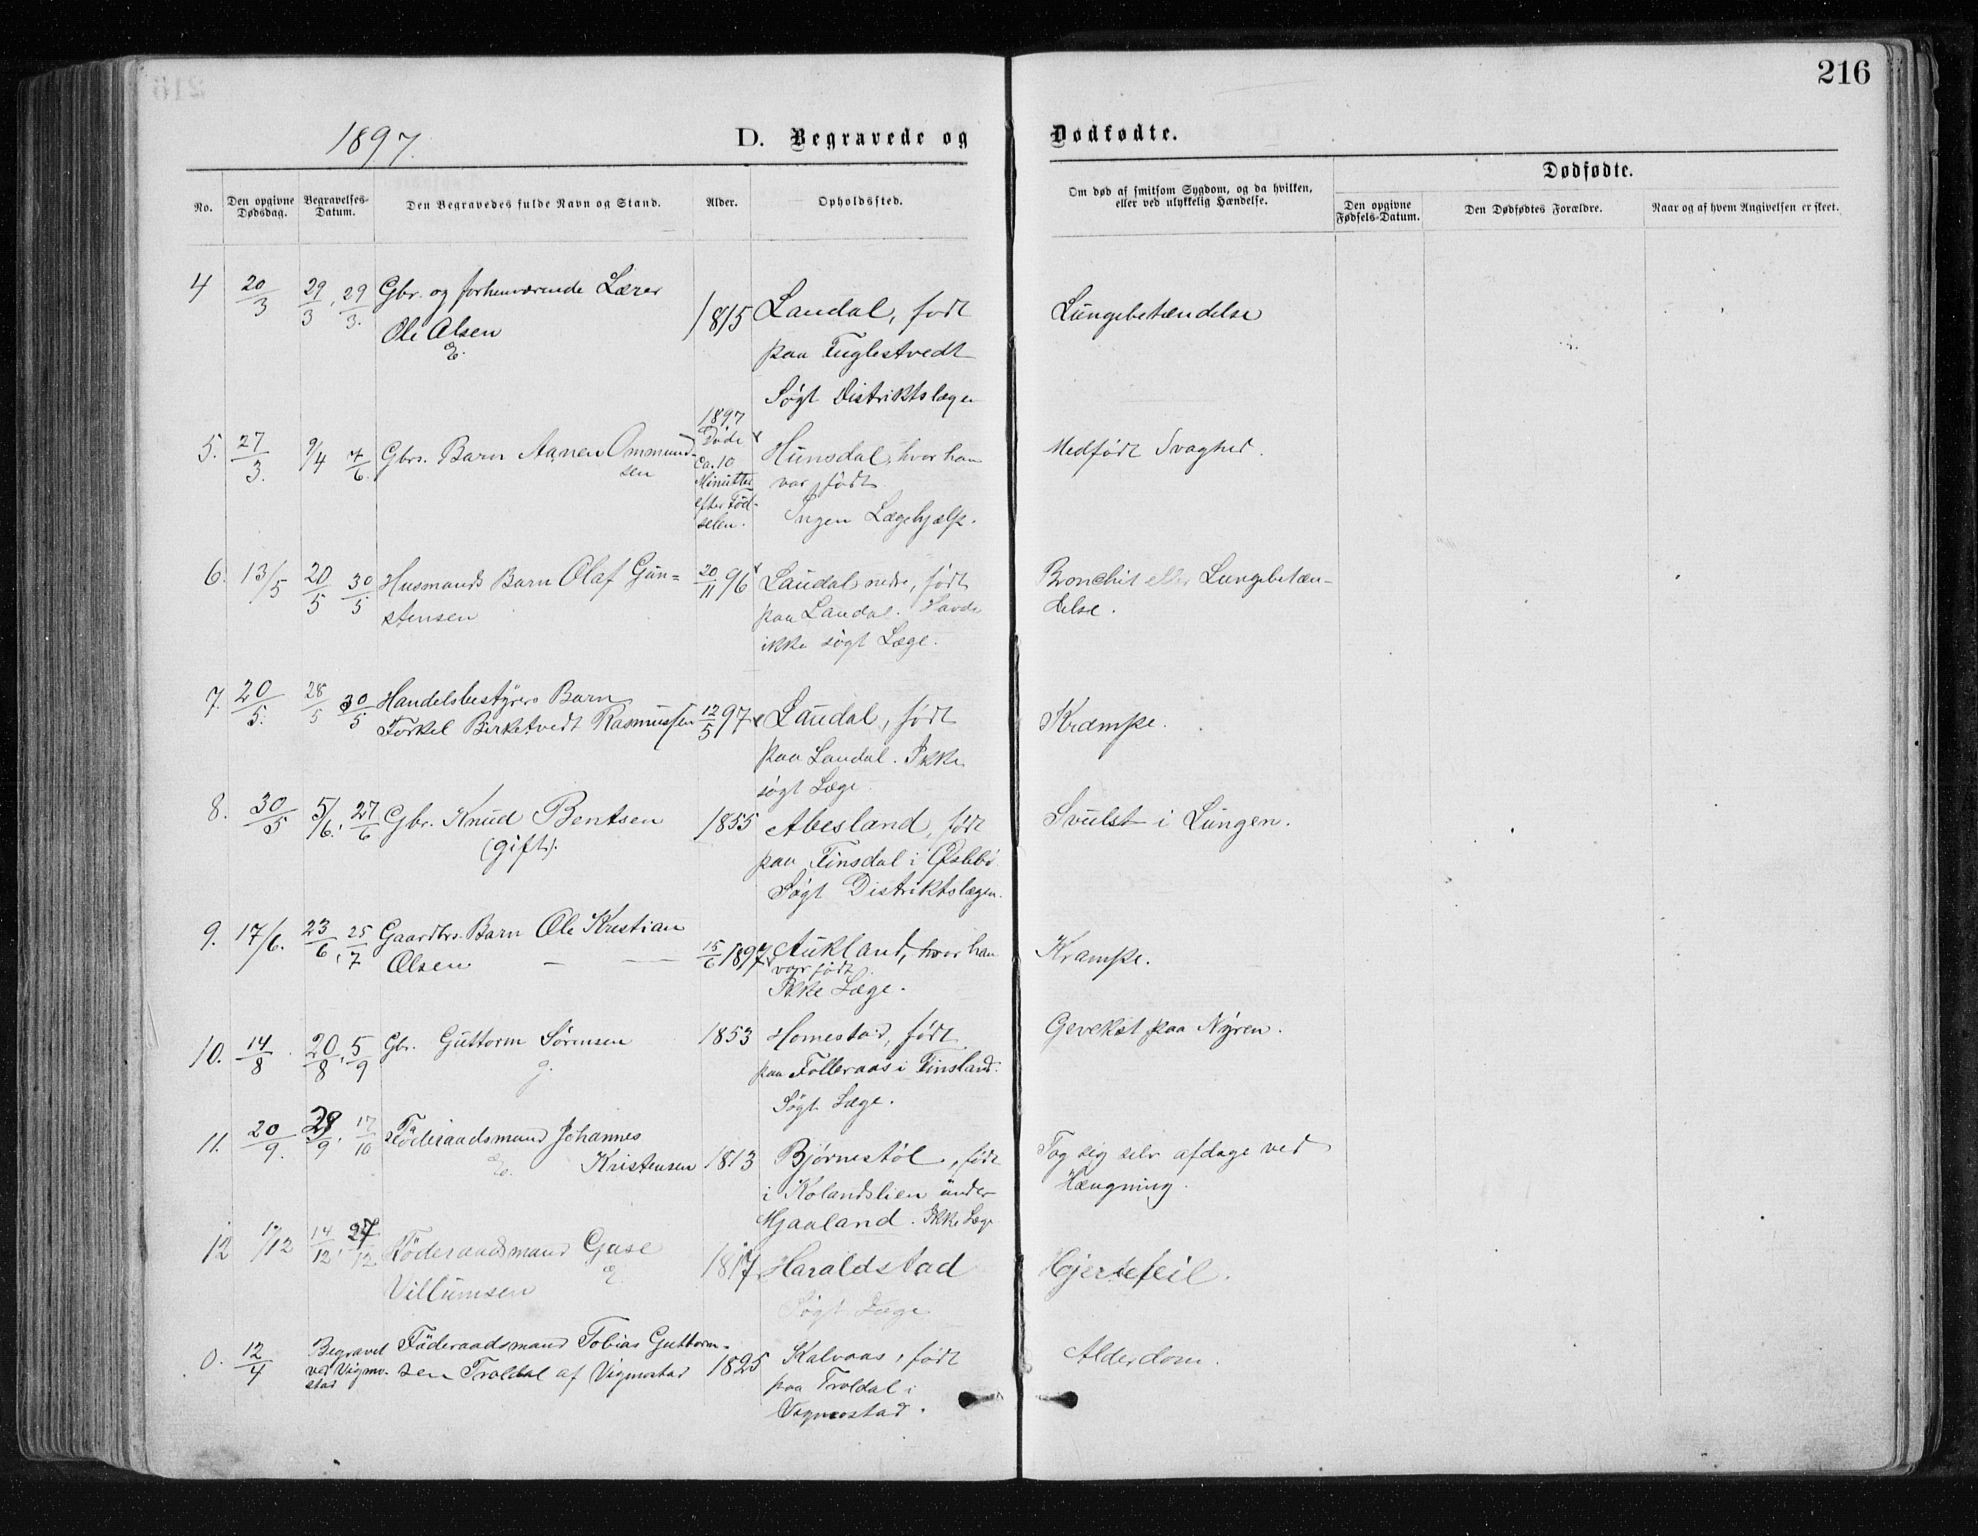 216
1897.
D. Begravede og Dødfødte.
Dødfødte.
No. Den opgivne Dødsdag. Begravelses-Datum. Den Begravedes fulde Navn og Stand. Alder. Opholdssted. Om død af smitsom Sygdom, og da hvilken, eller ved ulykkelig Hændelse. Den opgivne Fødsels-Datum. Den Dødfødtes Forældre. Naar og af hvem Angivelsen er skeet.
4 20/3 29/3, 29/3. Gbr. og forhenværende Lærer
Ole Olsen 1815 Laudal, født Lungebetændelse
E. paa Fuglestvedt
Søgt Distriktslægen
5. 27/3. 9/4 7/6. Gbrs. Barn Aanen Ommund-
sen 1897
Døde
ca. 10
Minutter
efter Fød-
selen. Hunsdal, hvor han
var født.
Ingen Lægehjælp. Medfødt Svaghed.
6. 13/5 20/5 30/5 Husmands Barn Olaf Gun=
stensen 20/11 96 Laudal nedre, født
paa Laudal. Havde
ikke søgt Læge. Bronchit eller Lungebetæn-
delse.
7. 20/5. 28/5 30/5 Handelsbestyrers Barn
Torkel Birketvedt Rasmussen 12/5 97 Laudal, født
paa Laudal. Ikke
søgt Læge. Krampe.
8. 30/5 5/6, 27/6 Gbr. Knud Bentsen
(gift). 1855 Abesland, født
paa Finsdal i Øslebø
Søgt Distriktslægen. Svulst i Lungen.
9. 17/6. 23/6, 25/7 Gaardbrs. Barn Ole Kristian
Olsen — — 15/6 1897 Aukland, hvor han
var født.
Ikke Læge. Krampe.
10. 14/8 20/8, 5/9 Gbr. Guttorm Sørensen
g. 1853 Homestad, født
paa Folleraas i Finsland.
Søgt Læge. Gevekst paa Nyren.
11. 20/9. 28/9, 17/10 Føderaadsmand Johannes
E. Kristensen 1813 Bjørnestøl, født
i Kolandslien under
Mjaaland. Ikke Læge Tog sig selv afdage ved
Hængning.
12 7/12 14/12, 27/12 Føderaadsmand Gase
Villumsen E. 1817 Haraldstad
Søgt Læge Hjertefeil.
0. 12/4 Begravet
ved Vigmo-
stad Føderaadsmand Tobias Guttorm-
sen Troldal af Vigmostad 1825 Kalvaas, født
paa Troldal i
Vigmostad. Alderdom.